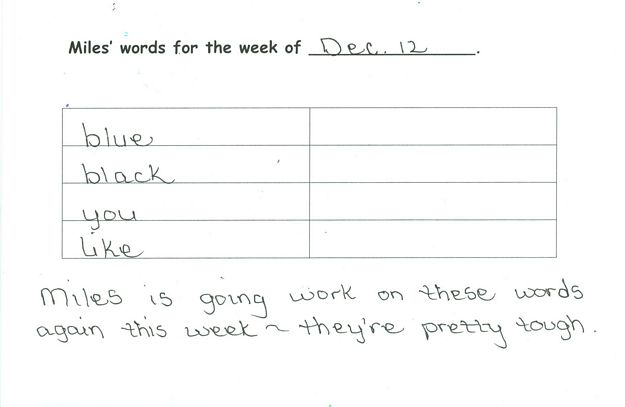 Miles' words for the week of Dec. 12.
blue
black
you
like
Miles is going work on these words
again this week ~ they're pretty tough.